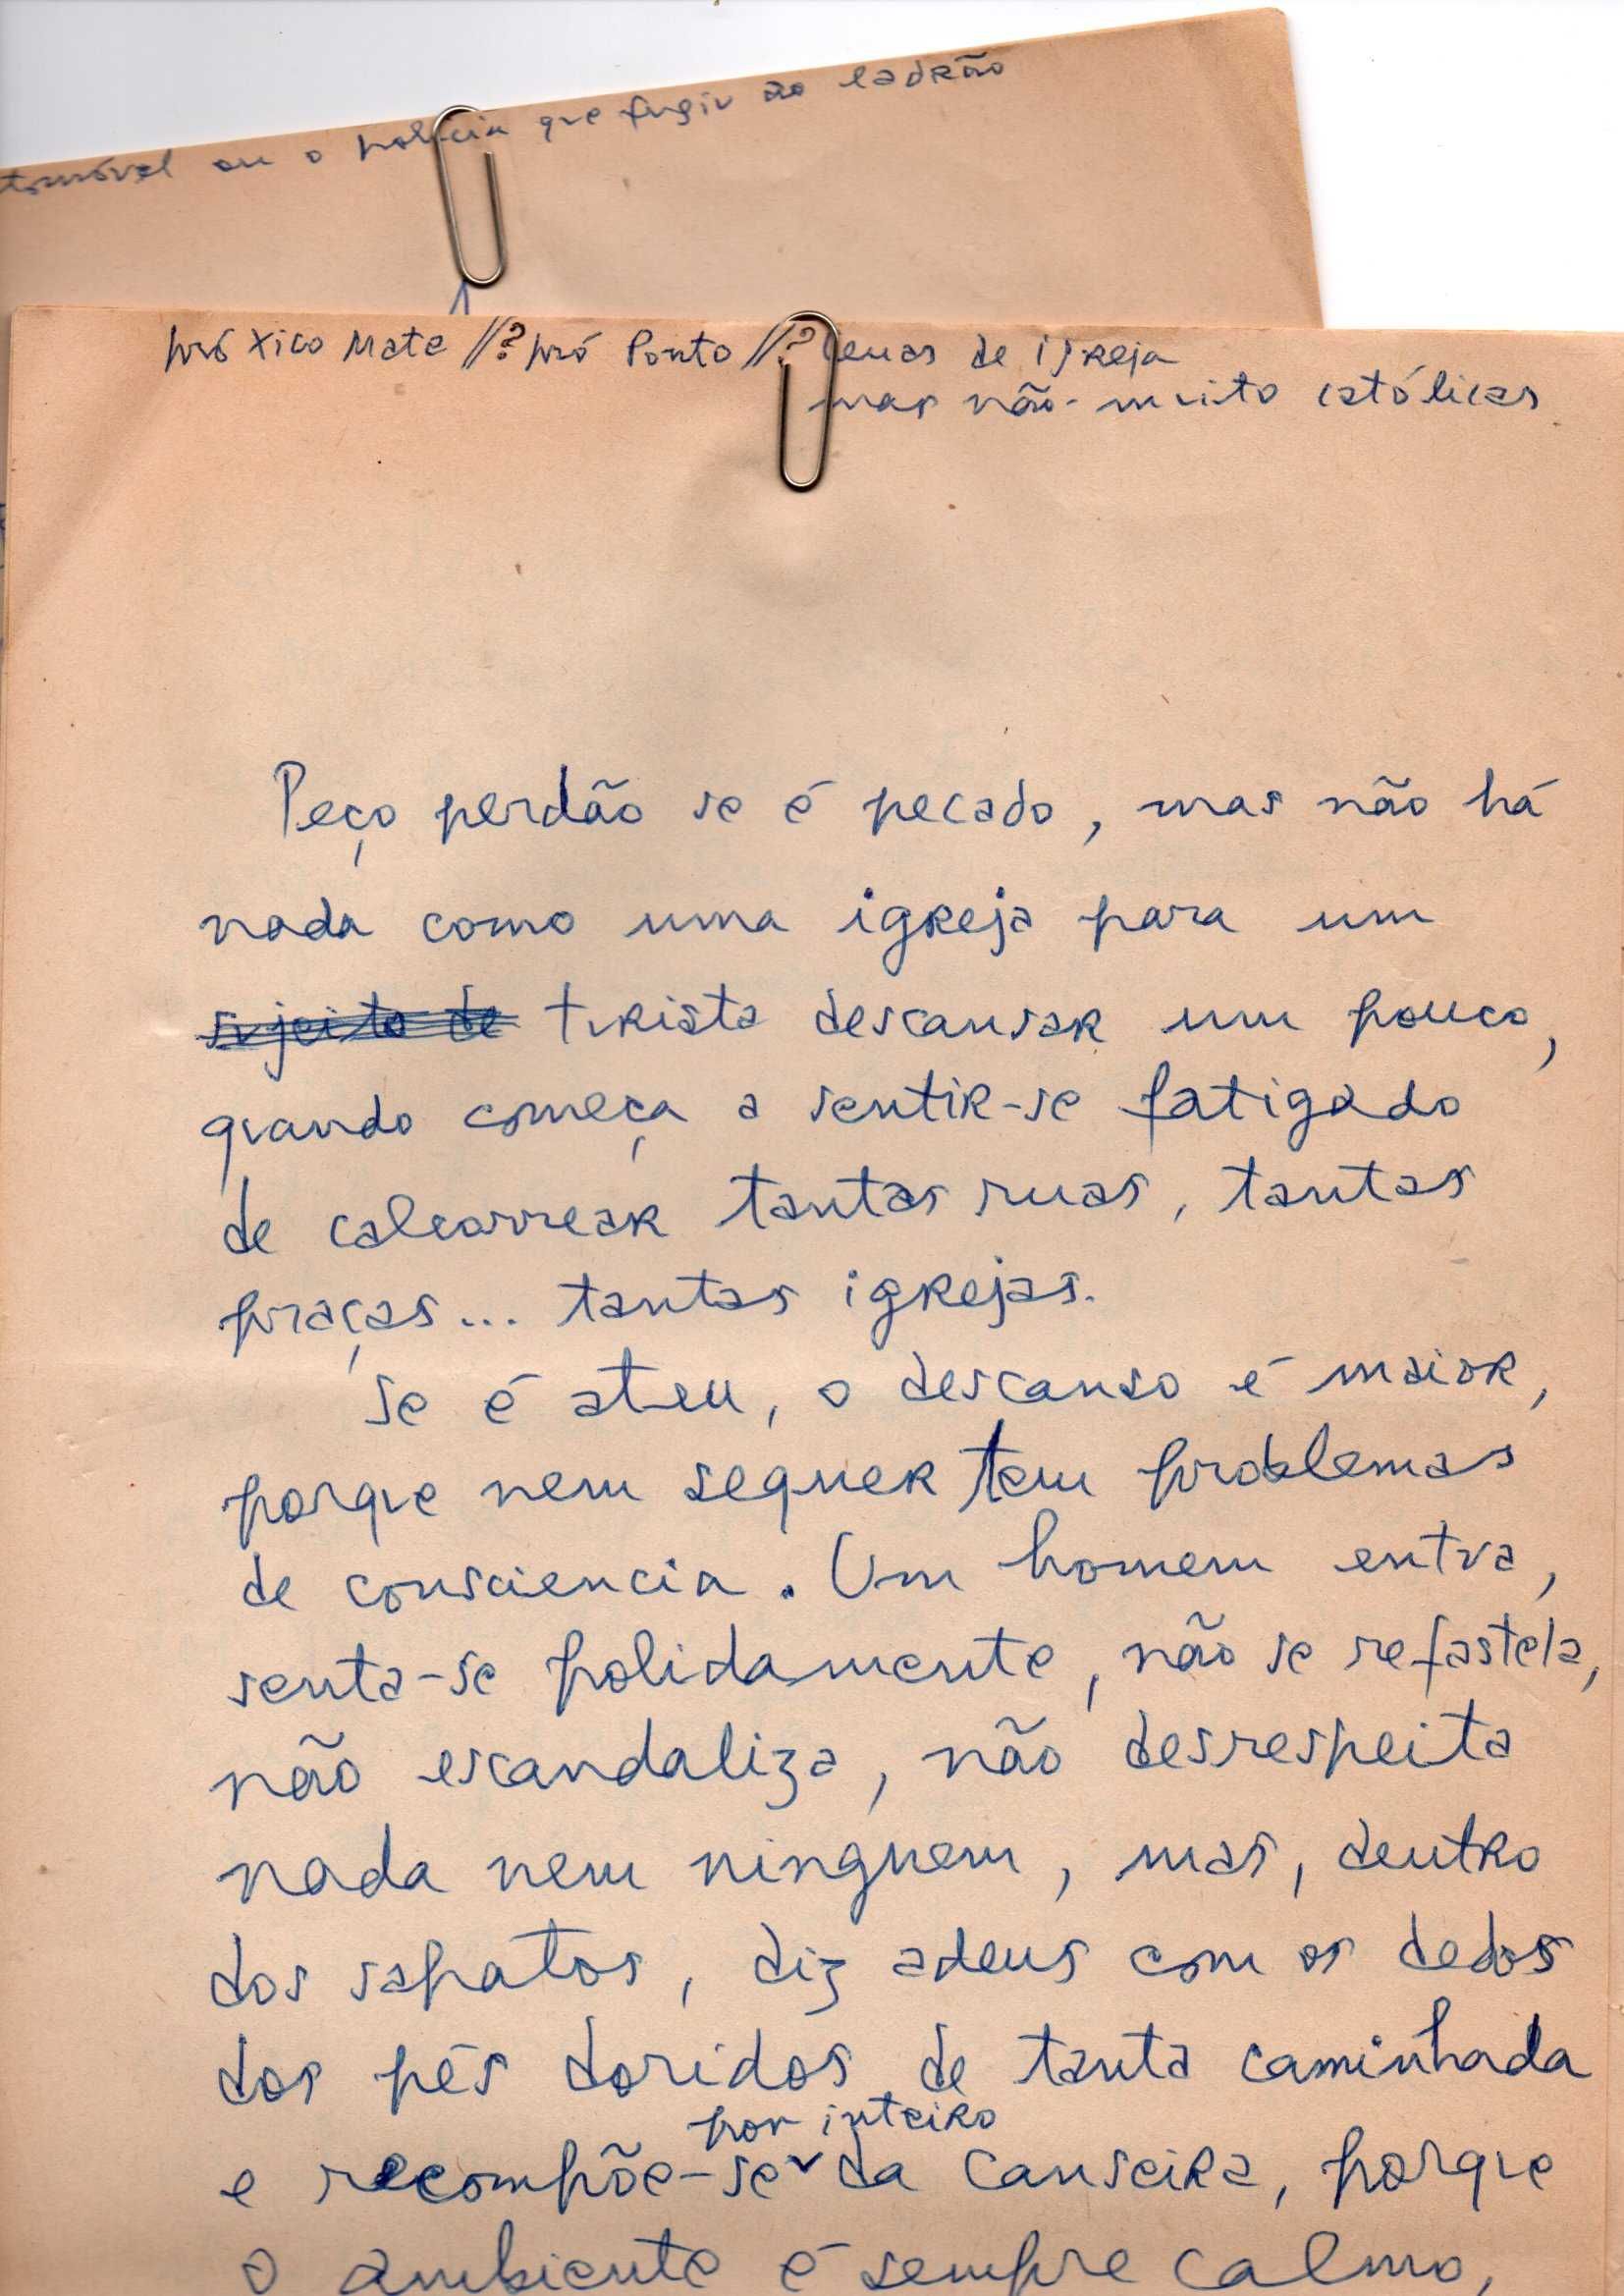 tomóvel ou o polícia que fugiu ao ladrão
pró Xico Mate //? pró Ponto //? cenas de igreja
mas não-muito católicas
Peço perdão se é pecado, mas não há
nada como uma igreja para um
sujeito de turista descansar um pouco,
quando começa a sentir-se fatigado
de calcorrear tantas ruas, tantas
praças... tantas igrejas.
Se é ateu, o descanso é maior,
porque nem sequer tem problemas
de consciencia. Um homem entra,
senta-se polidamente, não se refastela,
não escandaliza, não desrespeita
nada nem ninguem, mas, dentro
dos sapatos, diz adeus com os dedos
dos pés doridos de tanta caminhada
por inteiro
e recompõe-se da canseira, porque
o ambiente é sempre calmo,